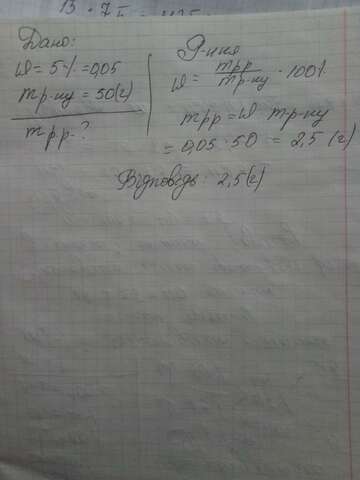 Дано:
W = 5% = 0,05
mр-ну = 50(г)
mрр-?
W = mрр / mр-ну · 100%
mрр = W mр-ну
= 0,05 · 50 = 2,5 (г)
Відповідь: 2,5(г)